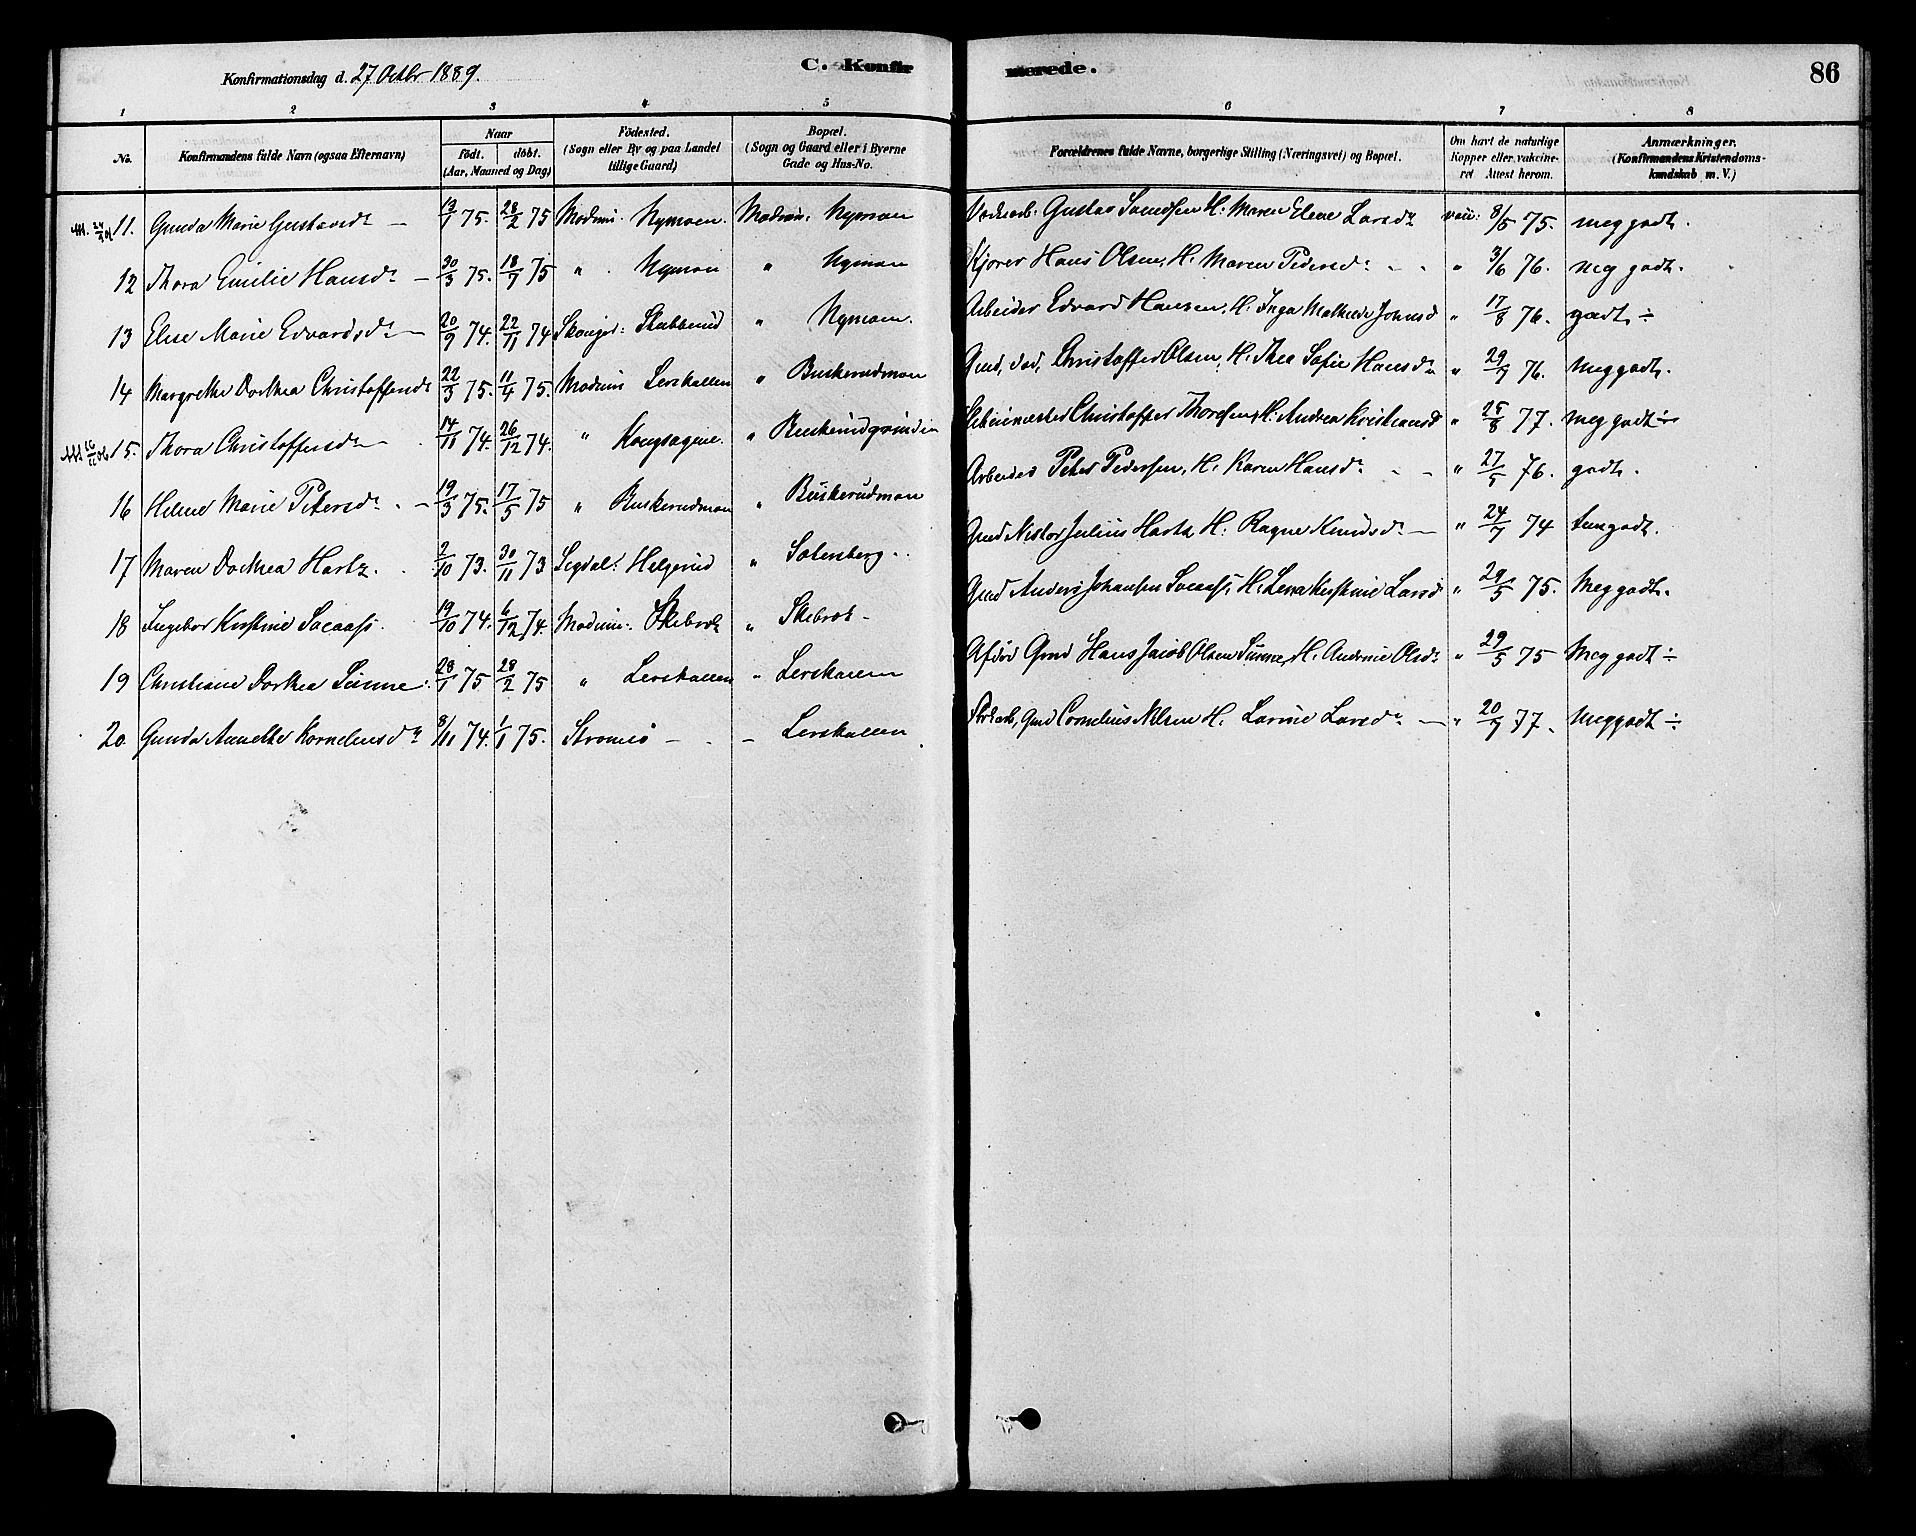 Konfirmationsdag d. 27 Octbr 1889.
C. Konfirmerede.
86
1 2 3 4 5 6 7 8
No.
Konfirmandens fulde Navn (ogsaa Efternavn)
Naar
födt. döbt.
(Aar, Maaned og Dag)
Födested.
(Sogn eller By og paa Landet
tillige Gaard)
Bopæl.
(Sogn og Gaard eller i Byerne
Gade og Hus-No.
Forældrenes fulde Navne, borgerlige Stilling (Næringsvei) og Bopæl.
Om havt de naturlige
Kopper eller vakcineret
Attest herom.
Anmærkninger.
(Konfirmandens Kristendomskundskab m. V.)
11. Gunda Marie Gustavsdr — 13/1 75. 28/2 75 Modum: Nymoen Modum: Nymoen Gustav Svendsen H. Maren Elene Larsdr 8/5 75. meg godt.
12 Thora Emilie Hansdr — 30/3 75. 18/7 75 " Nymoen " Nymoen Kjører Hans Olsen, H. Maren Pedersdr " 3/6 76. meg godt.
13 Elise Marie Edvardsdr — 20/9 74. 22/11 74 Skabberud " Nymoen. Arbeider Edvard Hansen, H. Inga Mathilde Johnsd " 17/8 76. godt ÷
14 Margrethe Dorthea Christoffersdr 22/3 75. 11/4 75. Modum Lerskallen " Buskerudmoen Christoffer Olsen, H. Thea Sofie Hansdr " 29/9 76. meg godt.
15. Thora Christoffersdr — 14/11 74. 26/12 74. " " Christoffer Thoresen, H. Andrea Kristiansd " 25/8 77. meg godt ÷
16 Helene Marie Petersdr — 19/3 75. 17/5 75 " Buskerudmoen " Buskerudmoen Arbeider Peter Pedersen, H. Karen Hansdr " 27/5 76. godt.
17 Maren Dorthea Hartz. 2/10 73. 30/11 73 Sigdal: Helgerud " Julius Hartz H. Ragne Knudsdr — " 24/7 74 temgodt.
18 Ingebor Kirstine 19/10 74. 6/12 74. Modum: Skebrek " Skebrek Gmd Anders Johansen H. Lena Kirstine Larsd " 29/5 75. Meg godt.
19 Christiane Dorthea Sünne. 28/1 75 28/2 75 " Lerskallen " Lerskallen Afdöd Gmd Hans Jacob Olsen Sünne, H. Andrine Olsdr " 29/5 75 Meg godt ÷
20. Gunda Annette Korneliusdr 8/11 74. 1/1 75. Strömsö — Lerskallen Gmd Cornelius Nilsen H. Larine Larsdr — " 20/9 77. Meg godt ÷